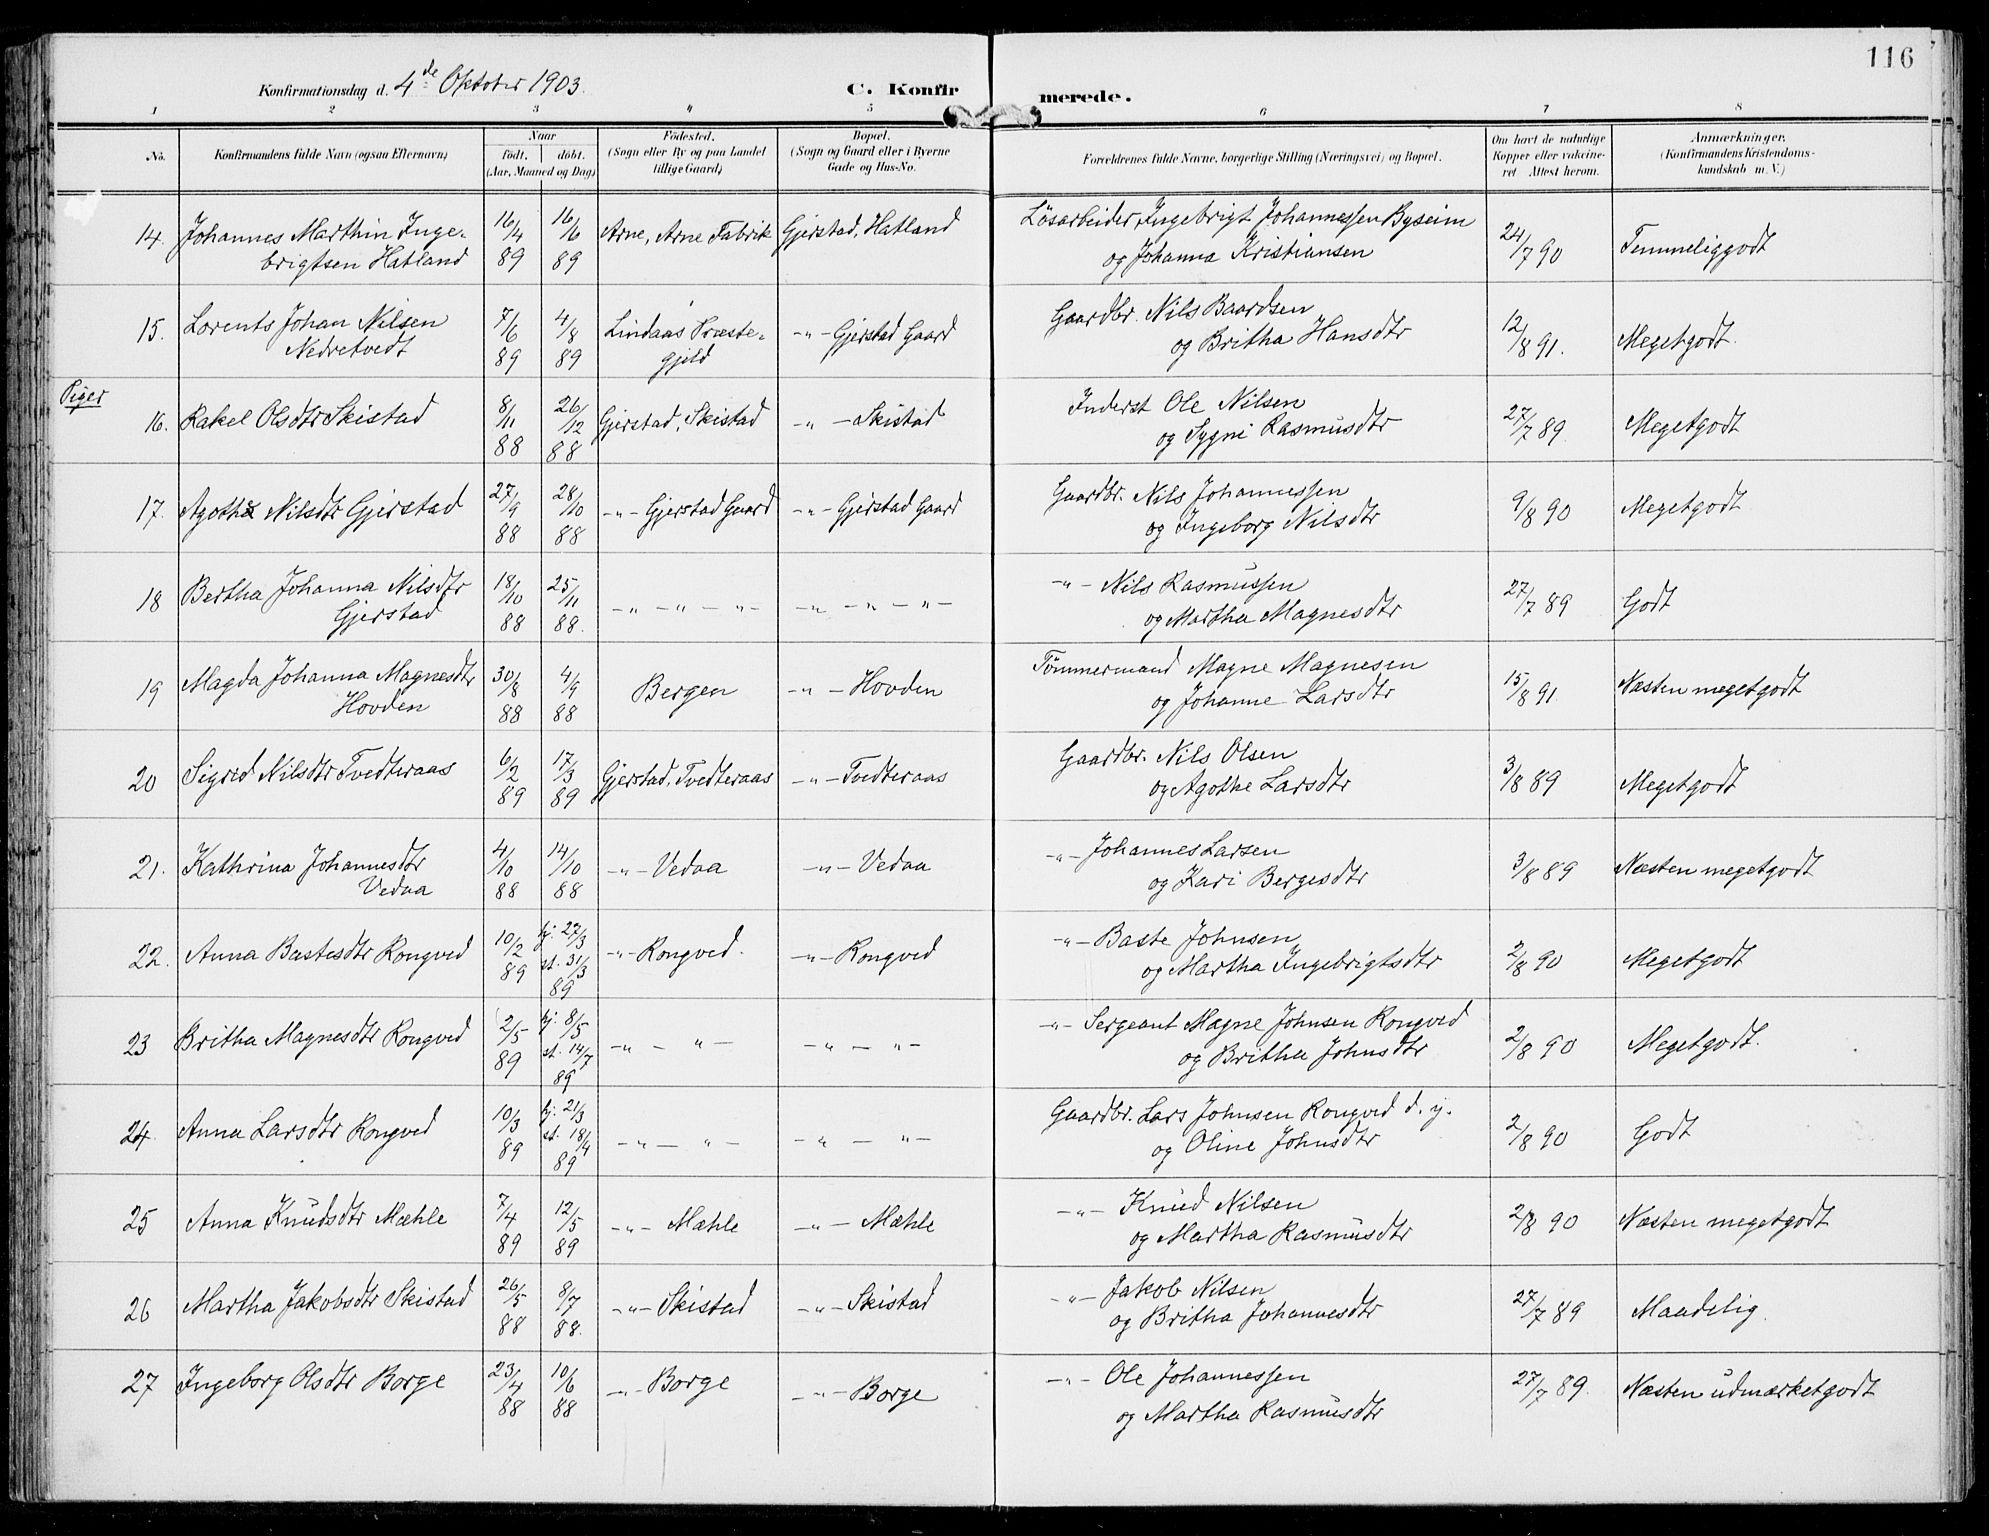 116
Konfirmationsdag d. 4de Oktober 1903.
C. Konfirmerede.
1 2 3 4 5 6 7 8
No. Konfirmandens fulde Navn (ogsaa Efternavn) Naar født. døbt. (Aar, Maaned og Dag) Fødested. (Sogn eller By og paa Landet tillige Gaard) Bopæl. (Sogn og Gaard eller i Byerne Gade og Hus-No. Forældrenes fulde Navne, borgerlige Stilling (Næringsvei) og Bopæl. Om havt de naturlige Kopper eller vakcineret Attest herom. Anmærkninger. (Konfirmandens Kristendomskundskab m. V.)
14. Johannes Marthin Ingebrigtsen Hatland 16/4 89 16/6 89 Arne, Arne Fabrik Gjerstad, Hatland Løsarbeider, Ingebrigt Johannessen Byseim og Johanna Kristiansen 24/7 90 Temmeliggodt
15. Lorents Johan Nilsen Nedretvedt 7/6 89 4/8 89 Lindaas Præstegjeld -"- Gjerstad Gaard Gaardbr. Nils Baardsen og Britha Hansdtr 12/8 91. Megetgodt.
Piger
16. Rakel Olsdtr Skistad 8/11 88 26/12 88 Gjerstad, Skistad -"- Skistad Inderst Ole Nilsen og Sygni Rasmusdtr 27/7 89 Megetgodt
17. Agothe Nilsdtr Gjerstad 27/9 88 28/10 88 -"- Gjerstad Gaard -"- Gjerstad Gaard Gaardbr. Nils Johannessen og Ingeborg Nilsdtr 9/8 90 Megetgodt
18 Bertha Johanna Nilsdtr Gjerstad 18/10 88 25/11 88. -"- -"- -"- -"- -"- -"- -"- Nils Rasmussen og Martha Magnesdtr 27/7 89 Godt
19 Magda Johanna Magnesdtr Hovden 30/8 88 4/9 88 Bergen -"- Hovden Tømmermand Magne Magnesen og Johanne Larsdtr 15/8 91. Næsten megetgodt
20 Sigred Nilsdtr Tvedteraas 6/2 89 17/3 89 Gjerstad, Tvedteraas -"- Tvedteraas Gaardbr. Nils Olsen og Agothe Larsdtr 3/8 89 Megetgodt
21. Kathrina Johannesdtr Vedaa 4/10 88 14/10 88 -"- Vedaa -"- Vedaa -"- Johannes Larsen og Kari Bergesdtr 3/8 89 Næsten megetgodt
22. Anna Bastesdtr Rongved 10/2 89 hj. 27/3 st. 31/3 89 -"- Rongved. -"- Rongved -"- Baste Johnsen og Martha Ingebrigtsdtr 2/8 90 Megetgodt
23 Britha Magnesdtr Rongved 2/5 89 hj. 8/5 st. 14/7 89 -"- "- -"- "- -"- Sergeant Magne Johnsen Rongved og Britha Johnsdtr 2/8 90 Megetgodt.
24. Anna Larsdtr Rongved 10/3 89 hj. 21/3 st. 18/4 89 -"- "- -"- "- Gaardbr. Lars Johnsen Rongved d. y. og Oline Johnsdtr 2/8 90 Godt
25 Anna Knudsdtr Mæhle 7/4 89 12/5 89 -"- Mæhle -"- Mæhle -"- Knud Nilsen og Martha Rasmusdtr 2/8 90 Næsten megetgodt
26 Martha Jakobsdtr Skistad 26/5 88 8/7 88. -"- Skistad -"- Skistad -"- Jakob Nilsen og Britha Johannesdtr 27/7 89 Maadelig.
27 Ingeborg Olsdtr Borge 23/4 88 10/6 88 -"- Borge -"- Borge -"- Ole Johannessen og Martha Rasmusdtr 27/7 89. Næsten udmærketgodt